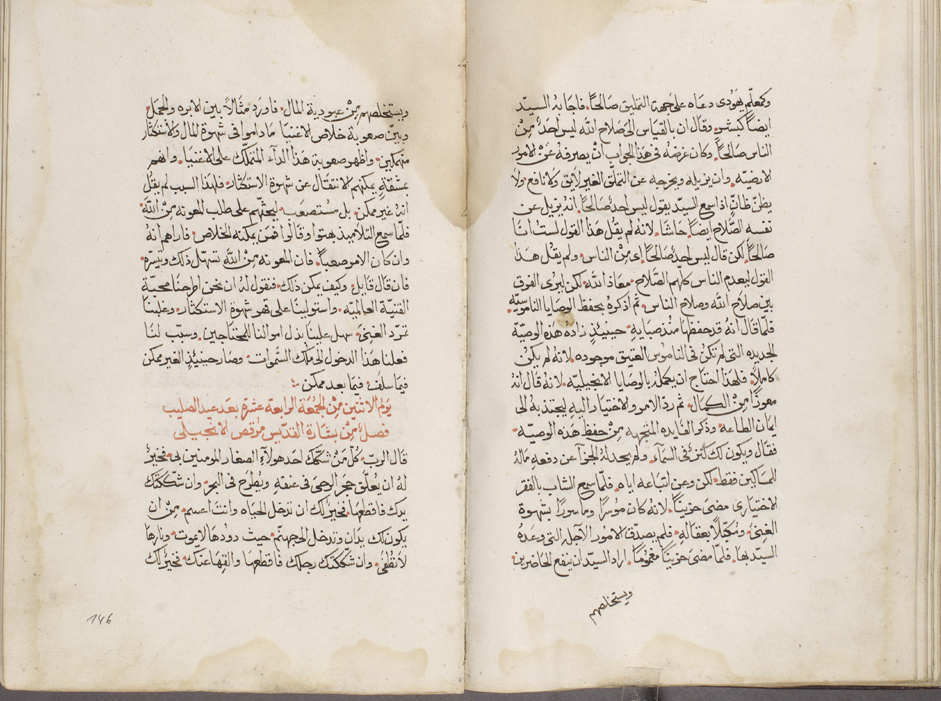 وكمعلّم يهودى دعاه على جهة التمليق صالحًا. فاجابه السيّد
ايضًا كبشر. وقال ان بالقياس الى صلاح الله ليس احد من
الناس صالحًا. وكان غرضه فى هذا الجواب ان يصرفه عن الامور
الارضيه. وان يزيله ويخرجه عن التملّق الغير لايق ولا نافع. ولا
يظنّ ظانّ اذا سمع السيّد يقول ليس احد صالحًا. انه يزيل عن
نفسه الصّلاح ايضًا. حاشا. لانه لم يقل هذا القول لست انا
صالحًا. لكن قال ليس احد صالحًا. اى من الناس. ولم يقل هذا
القول ليعدم الناس كلّهم الصّلاح. معاذ الله. لكن ليرى الفرق
بين صلاح الله وصلاح الناس. ثم اذكره بحفظ الوصايا الناموسيّه.
فلمّا قال انه قد حفظها منذ صبايه. حينيذٍ زاده هذه الوصيّة
الجديده التى لم تكن فى الناموس العتيق موجوده. لانه لم يكن
كاملًا. فلهذا احتاج ان يكمل بالوصايا الانجيليّه. لانه قال انه
معوز من الكمال. ثم ردّ الامور لاختيار اليه ليجتذبه الى
ايمان الطاعه. وذكر الفايده المتّجهه من حفظ هذه الوصيه.
فقال ويكون لك كنز فى السماء. ولم يحد له الجزآ عن دفعه ماله
للمساكين فقط. لكن وعن اتباعه اياه. فلمّا سمع الشاب بالفقر
الاختيارى مضى حزينًا. لانه كان موسرًا وماسورًا بشهوة
الغنى. ومكبّلًا بعقاله. فلم يصدّق الامور الآجله التى وعده
السيّد بها. فلمّا مضى حزينًا مغمومًا. اراد السيد ان ينفع الحاضرين
ويستخلصهم
ويستخلصهم من عبودية المال. فاورد مثالًا بين الابره والجمل
وبين صعوبة خلاص الاغنيا ما داموا فى شهوة المال والاستكثار
منهمكين. واظهر صعوبة هذا الدآء المتملّك على الاغنيا. وانهم
بمشقّةٍ يمكنهم الانتقال عن شهوة الاستكثار. فلهذا السبب لم يقل
انه غير ممكن. بل مستصعب. ليحثّهم على طلب المعونه من الله.
فلمّا سمع التلاميذ بهتوا وقالوا فمن يمكنه الخلاص. فاراهم انه
وان كان الامر صعبًا. فان المعونه من الله تسهّل ذلك وتيسّره.
فان قال قايل. وكيف يمكن ذلك. فنقول له ان نحن اطرحنا محبّة
القنيّة العالميّه. واستولينا على قهر شهوة الاستكثار. وغلبنا
تمرّد الغنى. سهل علينا بذل اموالنا للمحتاجين. وسبّب لنا
فعلنا هذا الدخول الى ملك السّموات. وصار حينيذٍ الغير ممكن
فيما سلف. فيما بعد ممكن
يوم الاتنين من الجمعة الرابعة عشرة بعد عيد الصليب
فصل من بشارة القدّيس مرقص الانجيلى
قال الربّ. كلّ من شكّك احد هولآء الصغار المومنين بى. فخيرٌ
له ان يُعلّق حجر الرحى فى عنقه ويُطرح فى البحر. وان شكّكتك
يدك فاقطعها. فخيرٌ لك ان تدخل الحياه وانت اعسم. من ان
يكون لك يدان وتدخل الى جهنّم. حيث دودها لا يموت. ونارها
لا تطفى. وان شكّكتك رجلك فاقطعها والقِها عنك. فخيرٌ لك
146